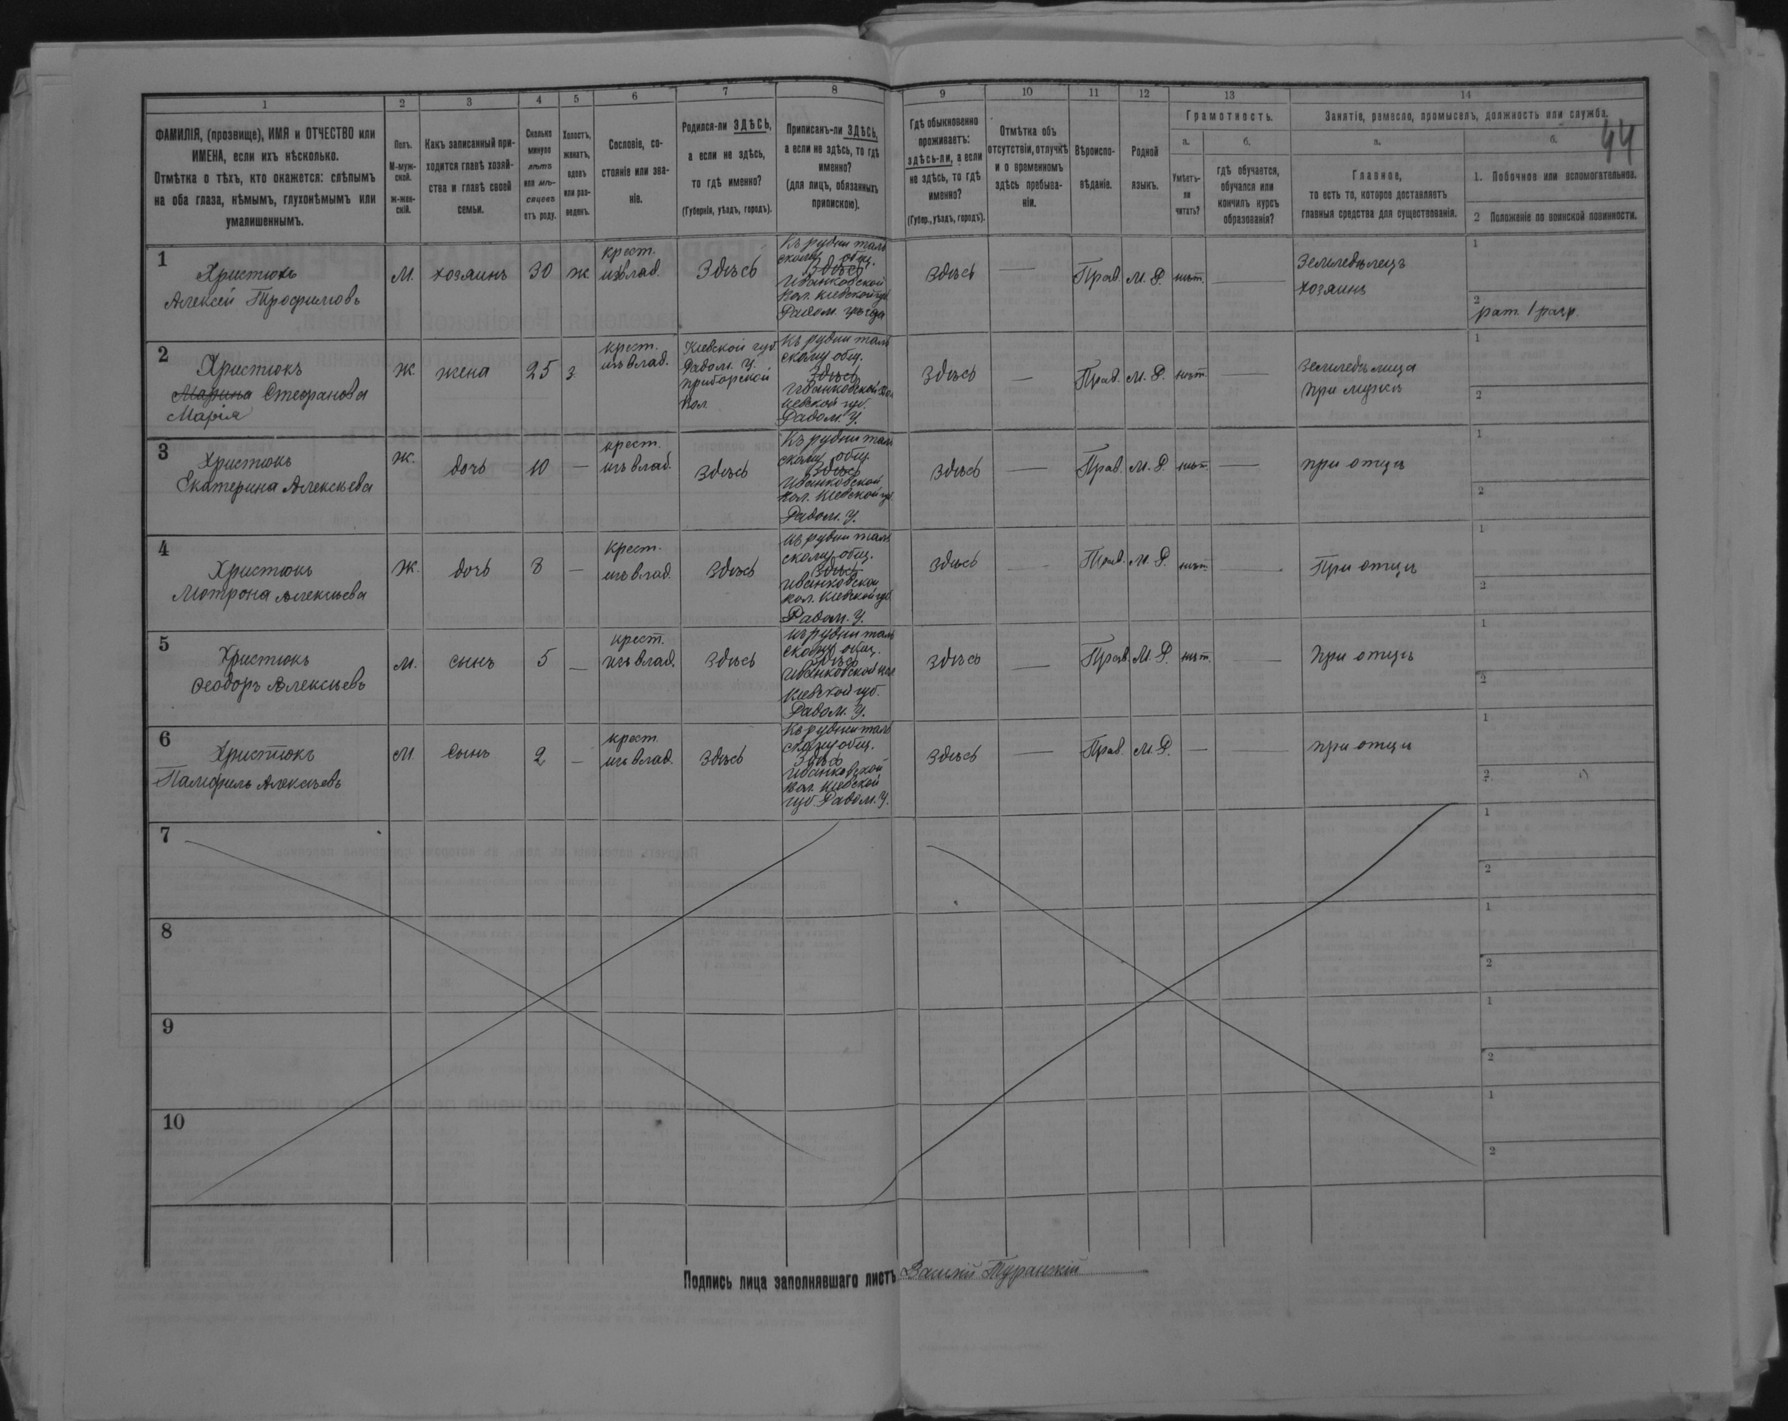 1 2 3 4 5 6 7 8 9 10 11 12 13 14
ФАМИЛІЯ, (прозвище), ИМЯ и ОТЧЕСТВО или
ИМЕНА, если ихъ нѣсколько.
Отмѣтка о тѣхъ, кто окажется: слѣпымъ
на оба глаза, нѣмымъ, глухонѣмымъ или
умалишеннымъ.
Полъ.
М-муж-
ской.
ж-жен-
скій.
Какъ записанный при-
ходится главѣ хозяй-
ства и главѣ своей
семьи.
Сколько
минуло
лѣтъ
или мѣ-
сяцевъ
отъ роду.
Холостъ,
женатъ,
вдовъ
или раз-
веденъ.
Сословіе, со-
стояніе или зва-
ніе.
Родился-ли ЗДѢСЬ,
а если не здѣсь,
то гдѣ именно?
(Губернія, уѣздъ, городъ).
Приписанъ-ли ЗДѢСЬ,
а если не здѣсь, то гдѣ
именно?
(для лицъ, обязанныхъ
припискою).
Гдѣ обыкновенно
проживаетъ:
здѣсь-ли, а если
не здѣсь, то гдѣ
именно?
(Губер., уѣздъ, городъ).
Отмѣтка объ
отсутствіи, отлучкѣ
и о временномъ
здѣсь пребыва-
ніи.
Вѣроиспо-
вѣданіе.
Родной
языкъ.
Грамотность.
а.
Умѣетъ-
ли
читать?
б.
гдѣ обучается,
обучался или
кончилъ курсъ
образованія?
Занятіе, ремесло, промыселъ, должность или служба.
44
а.
Главное,
то есть то, которое доставляетъ
главныя средства для существованія.
б.
1. Побочное или вспомогательное.
2 Положеніе по воинской повинности.
1
Христюкъ
Алексей Трофимовъ
М.
хозяинъ
30
ж
крест.
изъ влад.
Здѣсь
Къ рудни таль
скому общ.
Здѣсь
Иванковской
вол. Кіевской губ.
Радом. уѣзда
Здѣсь
—
Прав.
М. Р.
нѣт.
—
Земледѣлецъ
хозяинъ
1
2
рат. 1 разр.
2
Христюкъ
Марина Стефанова
Марія
Ж
жена
25
з
крест.
изъ влад.
Кіевской губ
Радом. У.
приборской
вол
Къ рудни таль
скому общ.
Здѣсь
Иванковской вол
Кіевской губ.
Радом. У.
Здѣсь
—
Прав.
М. Р.
нѣт.
—
Земледѣлица
при мужѣ
1
2
3
Христюкъ
Екатерина Алексѣева
Ж.
дочь
10
—
крест.
изъ влад.
Здѣсь
Къ рудни таль
скому общ
Здѣсь
Иванковской
вол. Кіевской губ.
Радом. У.
Здѣсь
—
Прав.
М. Р.
нѣт.
—
при отцѣ
1
2
4
Христюкъ
Мотрона Алексѣева
Ж.
дочь
8
—
крест.
изъ влад.
Здѣсь
Къ рудни таль
скому общ.
Здѣсь
Иванковской
вол. Кіевской губ
Радом. У.
Здѣсь
—
Прав.
М. Р.
нѣт.
—
При отцѣ
1
2
5
Христюкъ
Ѳеодоръ Алексѣевъ
М.
сынъ
5
—
крест.
изъ влад.
Здѣсь
Къ рудни таль
скому общ.
Здѣсь
Иванковской вол
Кіевской губ.
Радом. У.
Здѣсь
—
Прав.
М. Р.
нѣт.
—
при отцѣ
1
2
6
Христюкъ
Памфилъ Алексѣевъ
М
сынъ
2
—
крест.
изъ влад.
Здѣсь
Къ рудни таль
скому общ.
Здѣсь
Иванковской
вол. Кіевской
губ. Радом. У.
Здѣсь
—
Прав
М. Р.
—
—
при отцѣ
1
2
7
1
2
8
1
2
9
1
2
10
1
2
Подпись лица заполнявшаго листъ Василій Туранскій